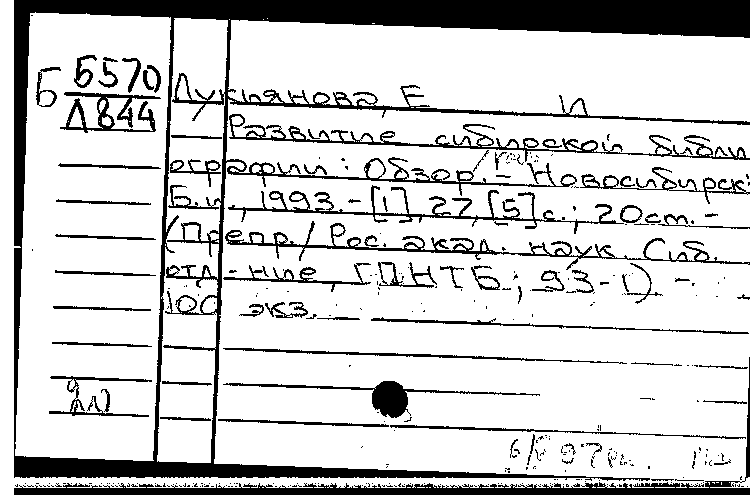 Б 5570
Л844
Лукьянова, Е И
Развитие сибирской библи
ографии : Обзор. – Новосибирск
Б.и., 1993. – [1], 27, [5] с.; 20 cm. –
(Препр. / Рос. акад. наук. Сиб.
отд-ние, ГПНТБ ; 93-1). –
100 экз.